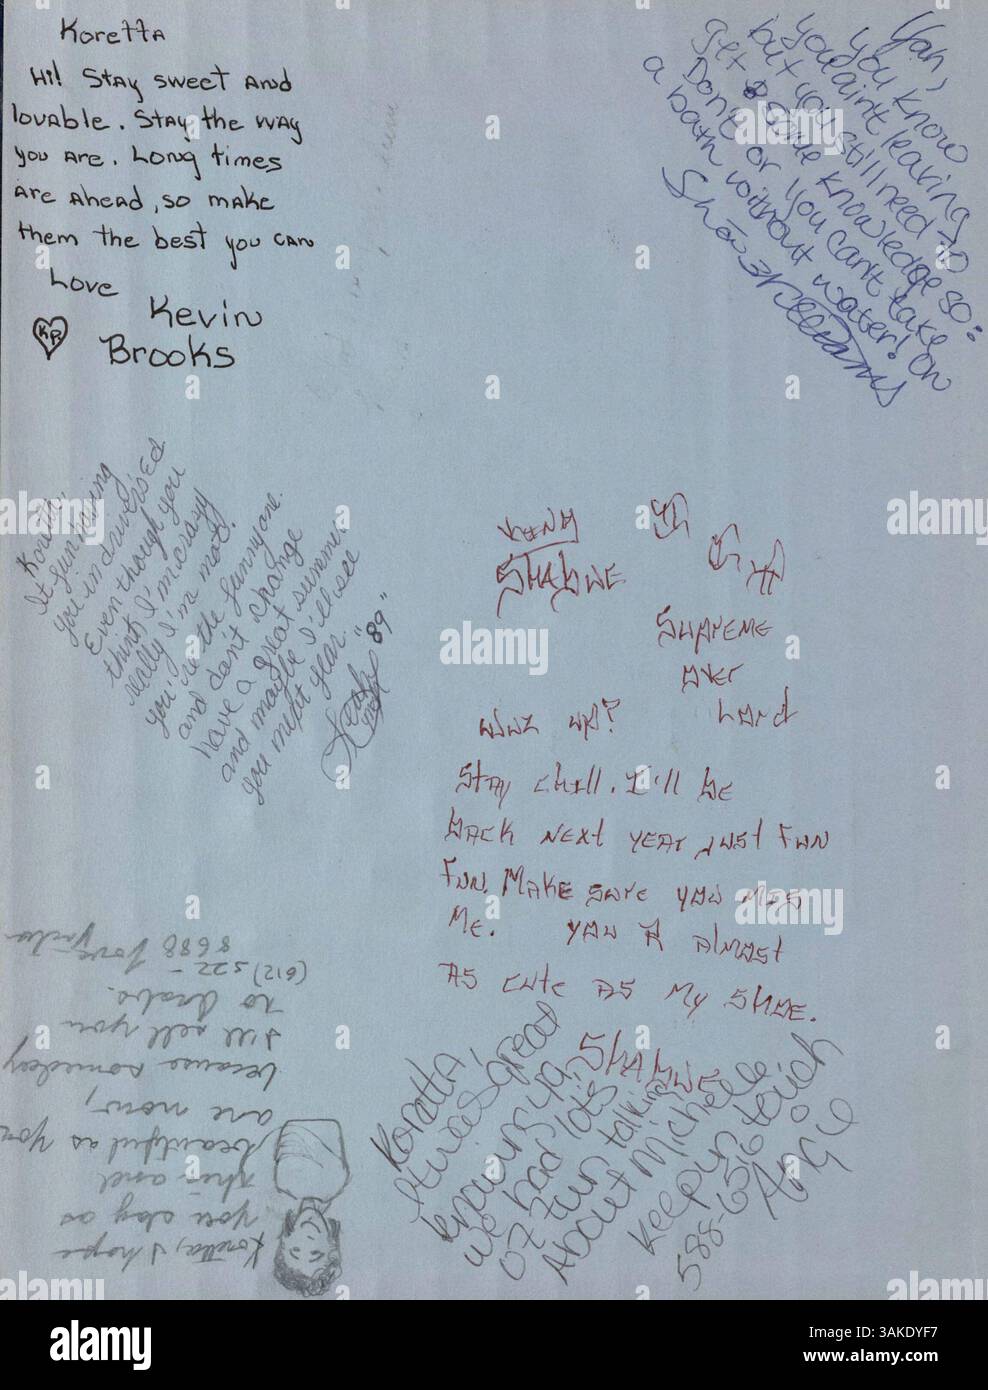 Koretta
Hi! Stay sweet and
lovable. Stay the way
you are. Long times
are ahead, so make
them the best you can
Love
Kevin
Brooks
KB
Yan,
you know
you aint leaving
but you still need to
get some knowledge so:
Don't or you can't take
a bath without water! on
Koretta,
It fun having
you in drivers ed
Even though you
think I'm crazy
really I'm not.
you're the funny one.
and don't change
have a great summer
and maybe I'll see
you next year.
"89"
King
Shabwe
Supreme
over
Lord
Wuz up?
Stay chill. I'll be
back next year just fun
fun. Make sure you mis
me. you R almost
as cute as my shoe.
Shabwe
Koretta,
It was great
knowing ya,
we had lots
of fun talking
about Michelle
Keep in touch
588-6516
Angie
Koretta, I hope
you stay as
thin and
beautiful as you
are now,
because someday
I'll sell you
to Arabs.
(612) 522-
8688 Love,
a
alamy
Image ID: 3AKDYF7
www.alamy.com